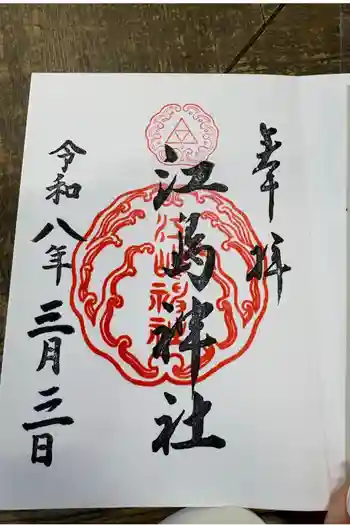 奉拝
江島神社
江島神社
令和八年三月三日